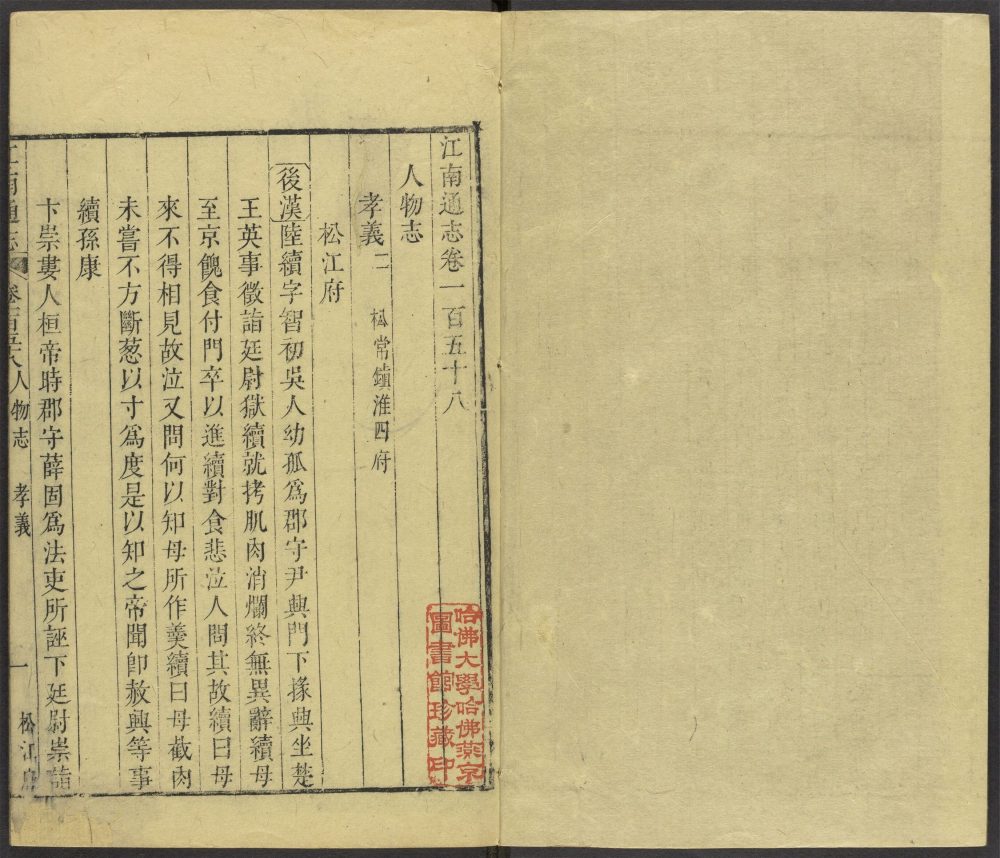 江南通志卷一百五十八
人物志
孝義二 松常鎮淮四府
松江府
後漢陸續字智初吳人幼孤爲郡守尹興門下掾興坐楚
王英事徵詣廷尉獄續就拷肌肉消爛終無異辭續母
至京餽食付門卒以進續對食悲泣人問其故續曰母
來不得相見故泣又問何以知母所作羹續曰母截肉
未嘗不方斷葱以寸爲度是以知之帝聞卽赦興等事
續孫康
卞崇婁人桓帝時郡守薛固爲法吏所誣下廷尉崇詣
江南通志 卷一百五十八人物志 孝義 一 松江府
哈佛大學哈佛燕京
圖書館珍藏印